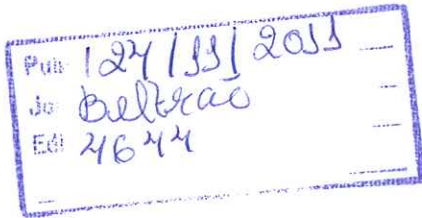 Pub 24/11/2011
Jo Beltrão
Edi 4644